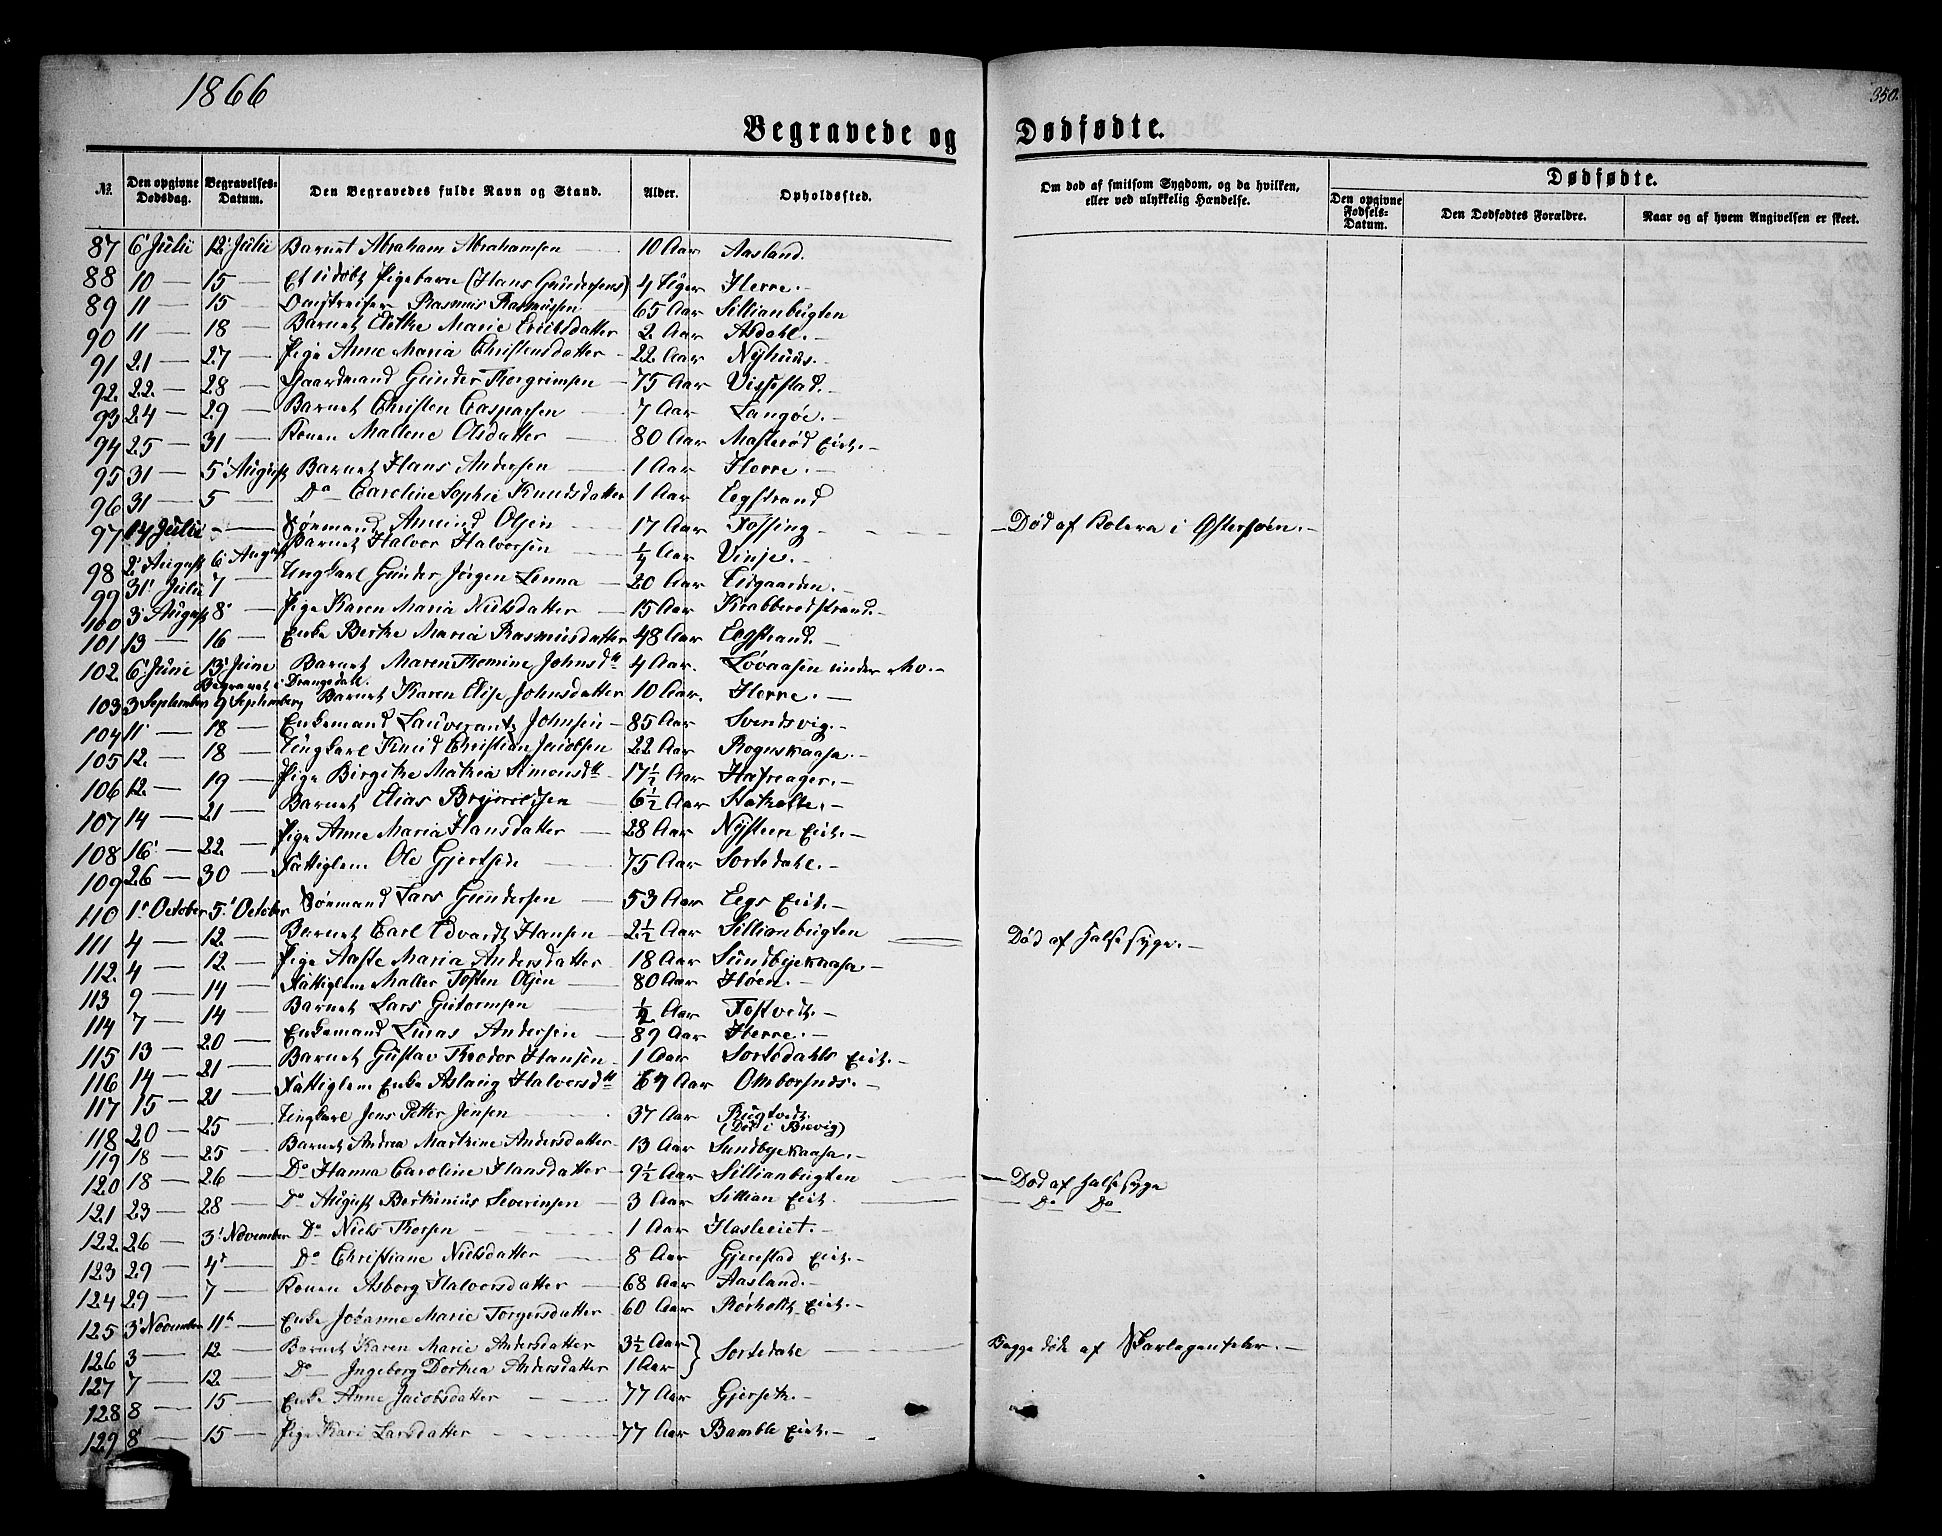 1866
350.
Begravede og Dødfødte.
№ Den opgivne Dødsdag. Begravelses-Datum. Den Begravedes fulde Navn og Stand. Alder. Opholdssted. Om død af smitsom Sygdom, og da hvilken, eller ved ulykkelig Hændelse. Dødfødte.
Den opgivne Fødsels-Datum. Den Dødfødtes Forældre. Naar og af hvem Angivelsen er skeet.
87 6' Julii 12' Julii Barnet Abraham Abrahamsen 10 Aar Aasland.
88 10 — 15 — Et udøbt Pigebarn (Hans Gundersens) 4 Herre. —
89 11 — 15 — Rasmus Rasmussen 65 Aar Sillianbugten
90 11 — 18 — Barnet Marie 2 Aar Asdahl. —
91 21 — 27 — Pige Anne Maria Christensdatter 22 Aar Nyhuus. —
92 22 — 28 — Gaardmand Gunder Thorgrimsen 75 Aar Vissestad. —
93 24 — 29 — Barnet Christen Caspersen 7 Aar Langøe. —
94 25 — 31 — Konen Mallene Olsdatter 80 Aar Eiet. —
95 31 — 5' August Barnet Hans Andersen 1 Aar Herre. —
96 31 — 5 — Do Caroline Sophie Knudsdatter 1 Aar Eegstrand
97 14 Julii — Sømand Amund Olsen 17 Aar Tossing — Død af Kolera i Østersøen. —
98 2' August 6' August Barnet Halvor Halvorsen ¼ Aar Vinje. —
99 31' Julii 7 — Ungkarl Gunder Jørgen Lenna 20 Aar Eidgaarden. —
100 3' August 8' — Pige Karen Maria Nielsdatter 15 Aar Krabberødstrand. —
101 13 — 16 — Enke Berthe Maria Rasmusdatter 48 Aar Eegstrand. —
102 6' Junii 13' Junii Barnet Maren Thomine Johnsdtr 4 Aar. Løvaasen under Mo. —
Begravet i Drangedal.
103 3 September 9 September Barnet Karen Elise Johnsdatter 10 Aar. Herre. —
104 11 — 18 — Enkemand Lauverants Johnsen 85 Aar Svendsvig. —
105 12. — 18 — Ungkarl Knud Christian Jacobsen 22 Aar Rognskaasa. —
106 12 — 19 — Pige Birgithe Mathea Simonsdtr 17½ Aar Hafreager. —
107 14 — 21 — Barnet Elias Brynildsen 6½ Aar Stokolte. —
108 16' — 22 — Pige Anne Maria Hansdatter 28 Aar Nysteen Eiet. —
109 26 — 30 — Fattiglem Ole Gjertsen 75 Aar Sortedahl. —
110 1' October 5' October Sømand Lars Gundersen 53 Aar Eegs Eiet. —
111 4 — 12 — Barnet Carl Edvardt Hansen 2½ Aar Sillianbugten — Død af Halssyge. —
112. 4 — 12 — Pige Aaste Maria Andersdatter 18 Aar Sundbyekaasa —
113 9 — 14 — Fattiglem Maller Tosten Olsen 80 Aar Høen. —
114 7 — 14 — Barnet Lars Gutormsen ½ Aar Tostvedt. —
115 13 — 20 — Enkemand Lucas Andersen 89 Aar Herre. —
116 14 — 21 — Barnet Gustav Theodor Hansen 1 Aar Sortedahls Eiet. —
117 15 — 21 — Fattiglem Enke Aslaug Halvorsdtr 67 Aar Omborsnes. —
118 20 — 25 — Ungkarl Jens Petter Jensen 37 Aar Rugtvedt.
(Død i Brevig)
119 18 — 25 — Barnet Andrea Mathine Andersdatter 13 Aar Sundbyekaasa. —
120 18 — 26 — Do Hanna Caroline Hansdatter 9½ Aar Sillianbugten — Død af Halssyge
121 23 — 28 — Do August Berthinius Severinsen 3 Aar Sillian Eiet — Do Do
122 26 — 3' November Do Niels Thorsen 1 Aar Hasleeiet. —
123 29 — 4' — Do Christiane Nielsdatter 8 Aar Gjerestad Eiet. —
124 29 — 7 — Konen Asborg Halvorsdatter 68 Aar Aasland. —
125 3' November 11te Enke Johanne Marie Torgersdatter 60 Aar Rørholt Eiet. —
126 3 — 12. — Barnet Karen Marie Andersdatter 3½ Aar } Sortedahl — Begge døde af Skarlagensfeber. —
127 7 — 12 — Do — Ingeborg Dorthea Andersdatter 1 Aar
128 8 — 15 — Enke Anne Jacobsdatter 77 Aar Gjerseth. —
129 8' — 15 — Pige Kari Larsdatter 77 Aar Bamble Eiet. —